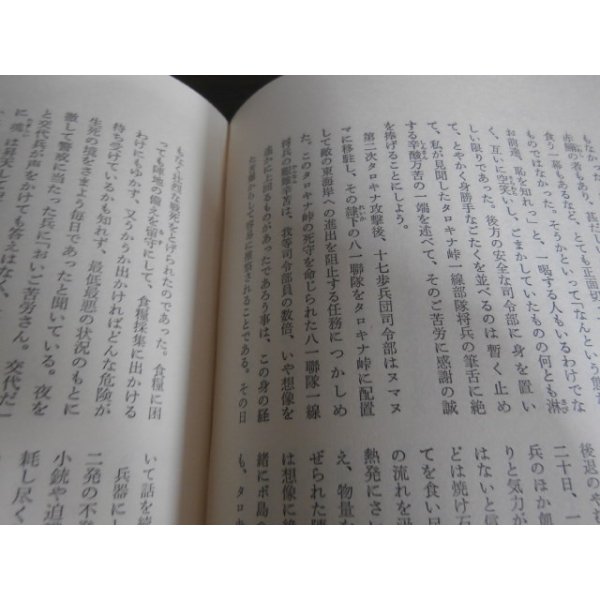 もなかった。
赤褌の者もあり、甚だし
食う一幕もあるなど、とても正面切っ
ものではなかった。そうかといって「なんという
お前達、恥を知れっ」と、一喝する人もいるわけでな
く、互いに空笑いし、ごまかしていたものの何とも淋
しい限りであった。後方の安全な司令部に身を置い
て、とやかく身勝手なごたくを並べるのは暫く止め
て、私が見聞したタロキナ峠一線部隊将兵の筆舌に絶
する辛酸万苦の一端を述べて、そのご苦労に感謝の誠
を捧げることにしよう。
第二次タロキナ攻撃後、十七歩兵団司令部はヌマヌ
マに移駐し、その隷下の八一聯隊をタロキナ峠に配置
して敵の東海岸への進出を阻止する任務につかしめ
た。このタロキナ峠の死守を命じられた八一聯隊一線
将兵の艱難辛苦は、我等司令部員の数倍、いや想像を
遥かに上回るものがあったであろう事は、この身の経
後退のやむ
二十日、一
兵のほか飢
りと気力が
はないと信
どは焼け石
てを食い尽
の流れを
熱発にさい
え、物量な
ぜられた陣
は想像に絶
緒にボ島
も、タロキ
もなく壮烈な戦死をとげられたのであった。食糧に困
っても陣地の備えを留守にして、食糧採集に出かける
わけにもゆかず、又うかうか出かければどんな危険が
待ち受けているかも知れず、最低最悪の状況のもとに
生死の境をさまよう毎日であったと聞いている。夜を
徹して警戒に当たった兵に「おいご苦労さん。交代だ」
と交代兵が声をかけても答えはなく、
に魂は昇天して
いて話を
兵器にし
二発の不
小銃や迫
耗し尽く